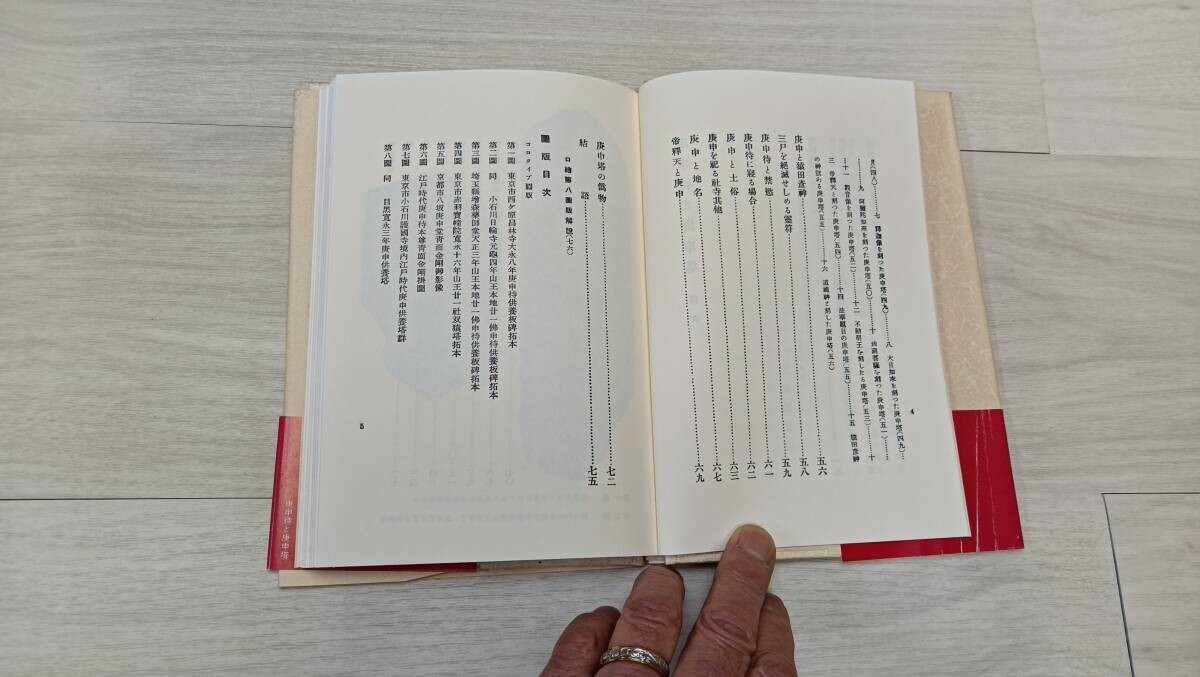 見(四八)………七 釋迦像を刻つた庚申塔(四九)………八 大日如來を刻つた庚申塔(四九)………
………九 阿彌陀如來を刻つた庚申塔(五〇)………十 地藏菩薩を刻つた庚申塔(五一)………
十一 觀音像を刻つた庚申塔(五二)………十二 不動明王を刻したる庚申塔(五三)………十
三 帝釋天と刻つた庚申塔(五四)………十四 法華題目の庚申塔(五五)………十五 猿田彦神
の神號ある庚申塔(五五)………十六 道祖神と刻した庚申塔(五六)
庚申と猿田彦神………五六
三尸を絕滅せしめる靈符………五八
庚申待と禁慾………五九
庚申待に寢る場合………六一
庚申と土俗………六二
庚申を祀る社寺其他………六三
庚申と地名………六七
帝釋天と庚申………六九
4
庚申塔の僞物………七二
結語………七五
口繪第八圖版解說(七六)
圖版目次
コロタイプ圖版
第一圖 東京市西ケ原昌林寺大永八年庚申待供養板碑拓本
第二圖 同 小石川日輪寺元龜四年山王本地廿一佛申待供養板碑拓本
第三圖 埼玉縣增森藥師堂天正三年山王本地廿一佛申待供養板碑拓本
第四圖 東京市赤羽寶幢院寬永十六年山王廿一社双猿塔拓本
第五圖 京都市八坂庚申堂靑面金剛御影像
第六圖 江戶時代庚申待本尊靑面金剛掛圖
第七圖 東京市小石川護國寺境內江戶時代庚申供養塔群
第八圖 同 目黑寬永三年庚申供養塔
5
庚申待と庚申塔